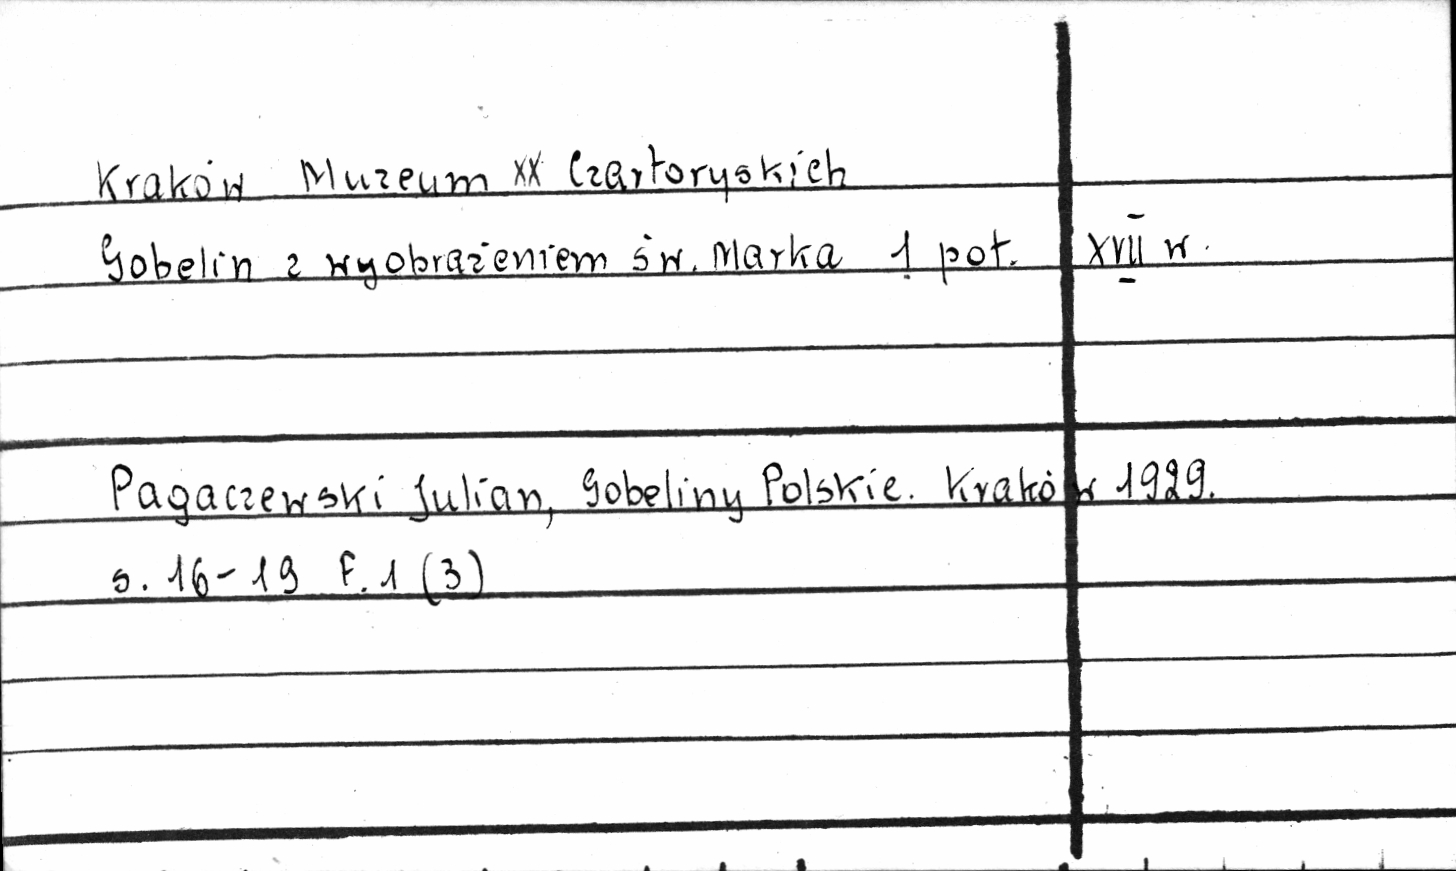 Kraków Muzeum XX Czartoryskich
Gobelin z wyobrażeniem św. Marka 1 poł. XVII w.
Pagaczewski Julian, Gobeliny Polskie. Kraków 1929.
s. 16-19 F. 1 (3)